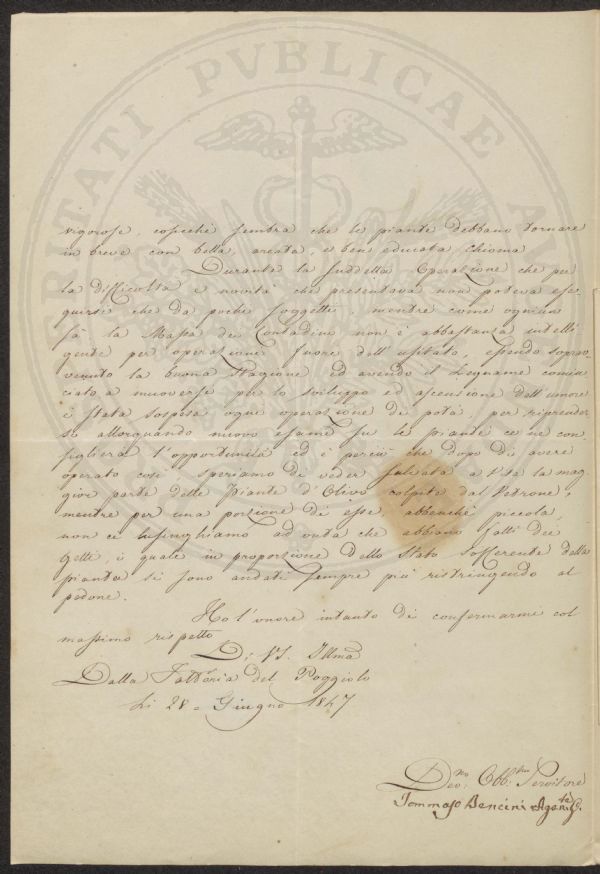 PROSPERITATI PVBLICAE AVGENDAE
vigorose, cosicchè sembra che le piante debbano tornare
in breve con bella, areata, e ben educata chioma
Durante la suddetta Operazione che per
la difficoltà e novità che presentava non poteva ese¬
guirsi che da pochi soggetti, mentre come ognun
sà la Massa dei Contadini non è abbastanza intelli
gente per operazioni fuori dell'usitato, essendo soprav¬
venuto la buona Stagione ed avendo il Legname comin
ciato a muoversi per lo sviluppo ed ascensione dell'umore
è stata sospesa ogni operazione di pota, per riprender
la allorquando nuovo esame su le piante ce ne con
siglierà l'opportunità ed è perciò che dopo di avere
operato così speriamo di veder salvata a V.ta la mag
gior parte delle Piante d'Olivo colpite dal Pedrone,
mentre per una porzione di esse, abbenchè piccola,
non ci lusinghiamo ad onta che abbiano fatti dei
Getti, i quali in proporzione dello Stato sofferente della
pianta si sono andati sempre più ristringendo al
pedone.
Ho l'onore intanto di confermarmi col
massimo rispetto
Di VS. Illma
Dalla Fattoria del Poggiolo
Li 28= Giugno 1847
Dev:mo Obb:mo Servitore
Tommaso Bencini Agente